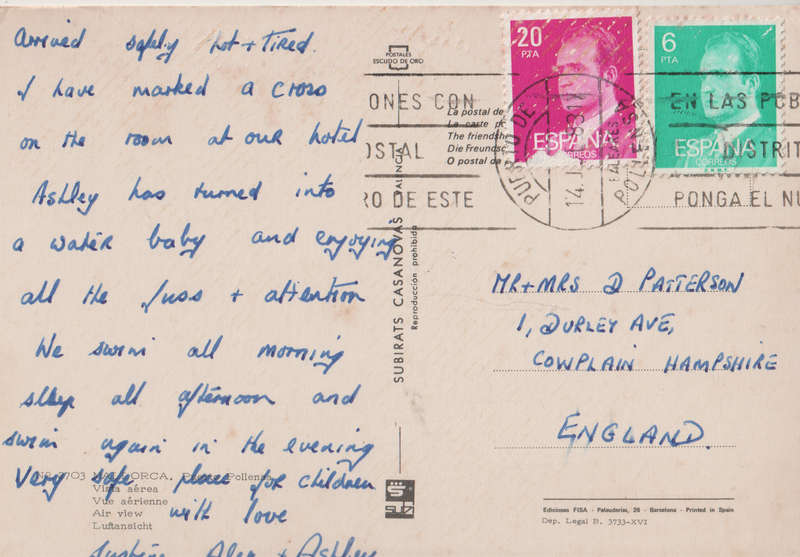 Arrived safely hot + tired.
I have marked a cross
on the room at our hotel
Ashley has turned into
a water baby and enjoying
all the fuss + attention
We swim all morning
sleep all afternoon and
swim again in the evening
Very safe place for children
with love
Alex + Ashley
3703 MALLORCA. Pollensa
Vista aérea
Vue aérienne
Air view
Luftansicht
POSTALES
ESCUDO DE ORO
La postal de
La carte
The friendsh
Die Freundsc
O postal da
SUBIRATS CASANOVAS VALENCIA
Reproducción prohibida
20
PTA
ESPAÑA
CORREOS
6
PTA
ESPAÑA
CORREOS
ONES CON
OSTAL
RO DE ESTE
PUERTO DE POLLENSA
BALEARES
EN LAS POB
DISTRIT
PONGA EL NU
MR + MRS D PATTERSON
1, DURLEY AVE,
COWPLAIN HAMPSHIRE
ENGLAND.
Ediciones FISA - Palaudarias, 26 - Barcelona - Printed in Spain
Dep. Legal B. 3733-XVI